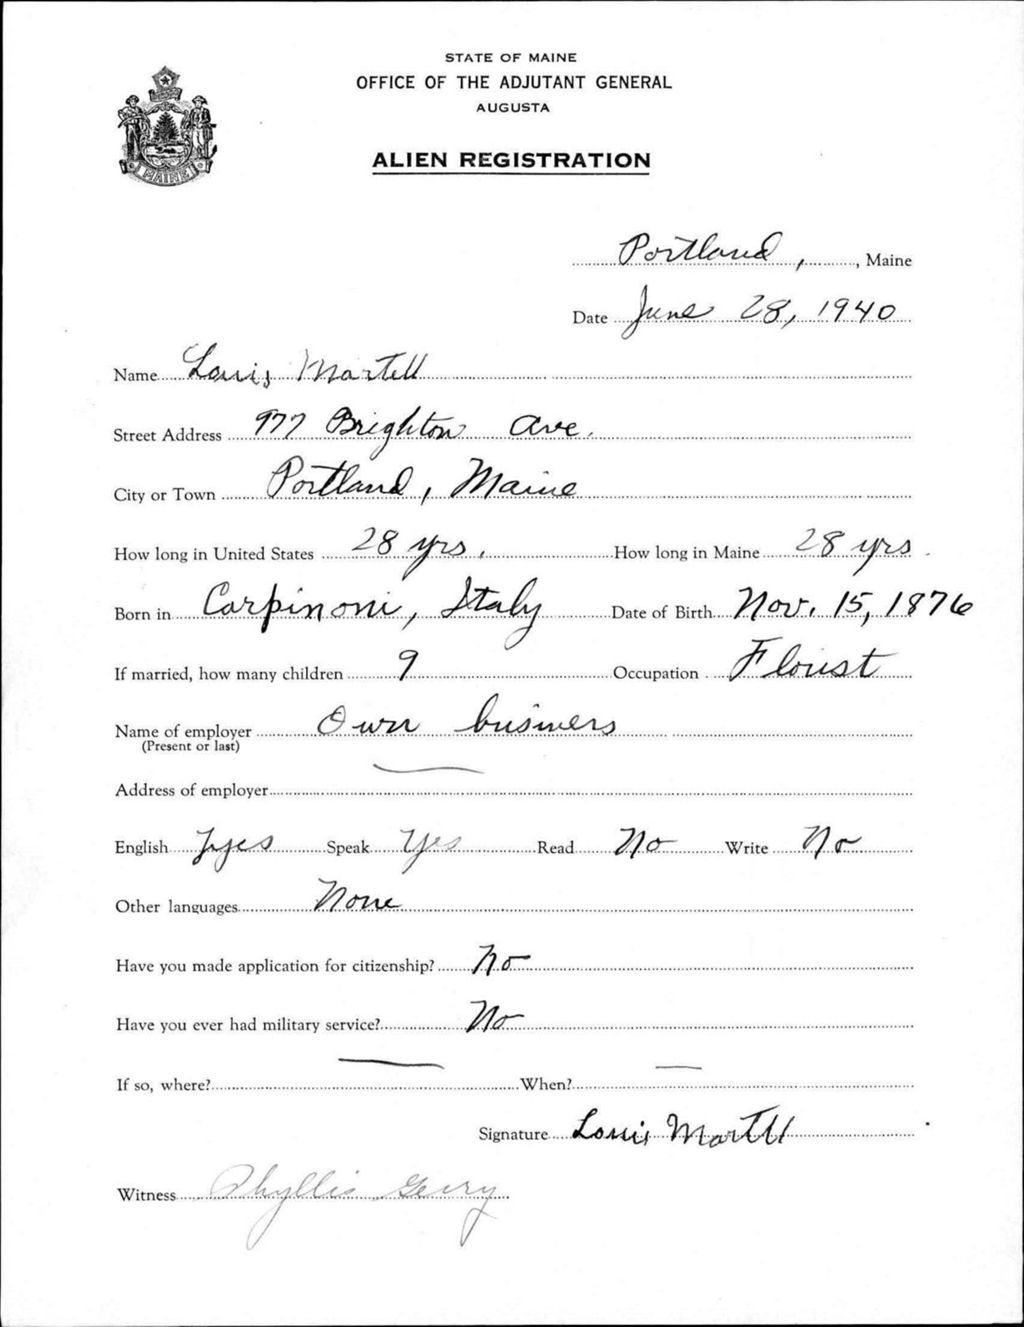 STATE OF MAINE
OFFICE OF THE ADJUTANT GENERAL
AUGUSTA
MAINE
ALIEN REGISTRATION
Portland, , Maine
Date June 28, 1940
Name Louis Martell
Street Address 977 Brighton Ave.
City or Town Portland, Maine
How long in United States 28 yrs. How long in Maine 28 yrs.
Born in Carpinoni, Italy Date of Birth Nov. 15, 1876
If married, how many children 9 Occupation Florist
Name of employer Own business
(Present or last)
Address of employer
English Yes Speak Yes Read No Write No
Other languages None
Have you made application for citizenship? No
Have you ever had military service? No
If so, where? When?
Signature Louis Martell
Witness Phyllis Geiry